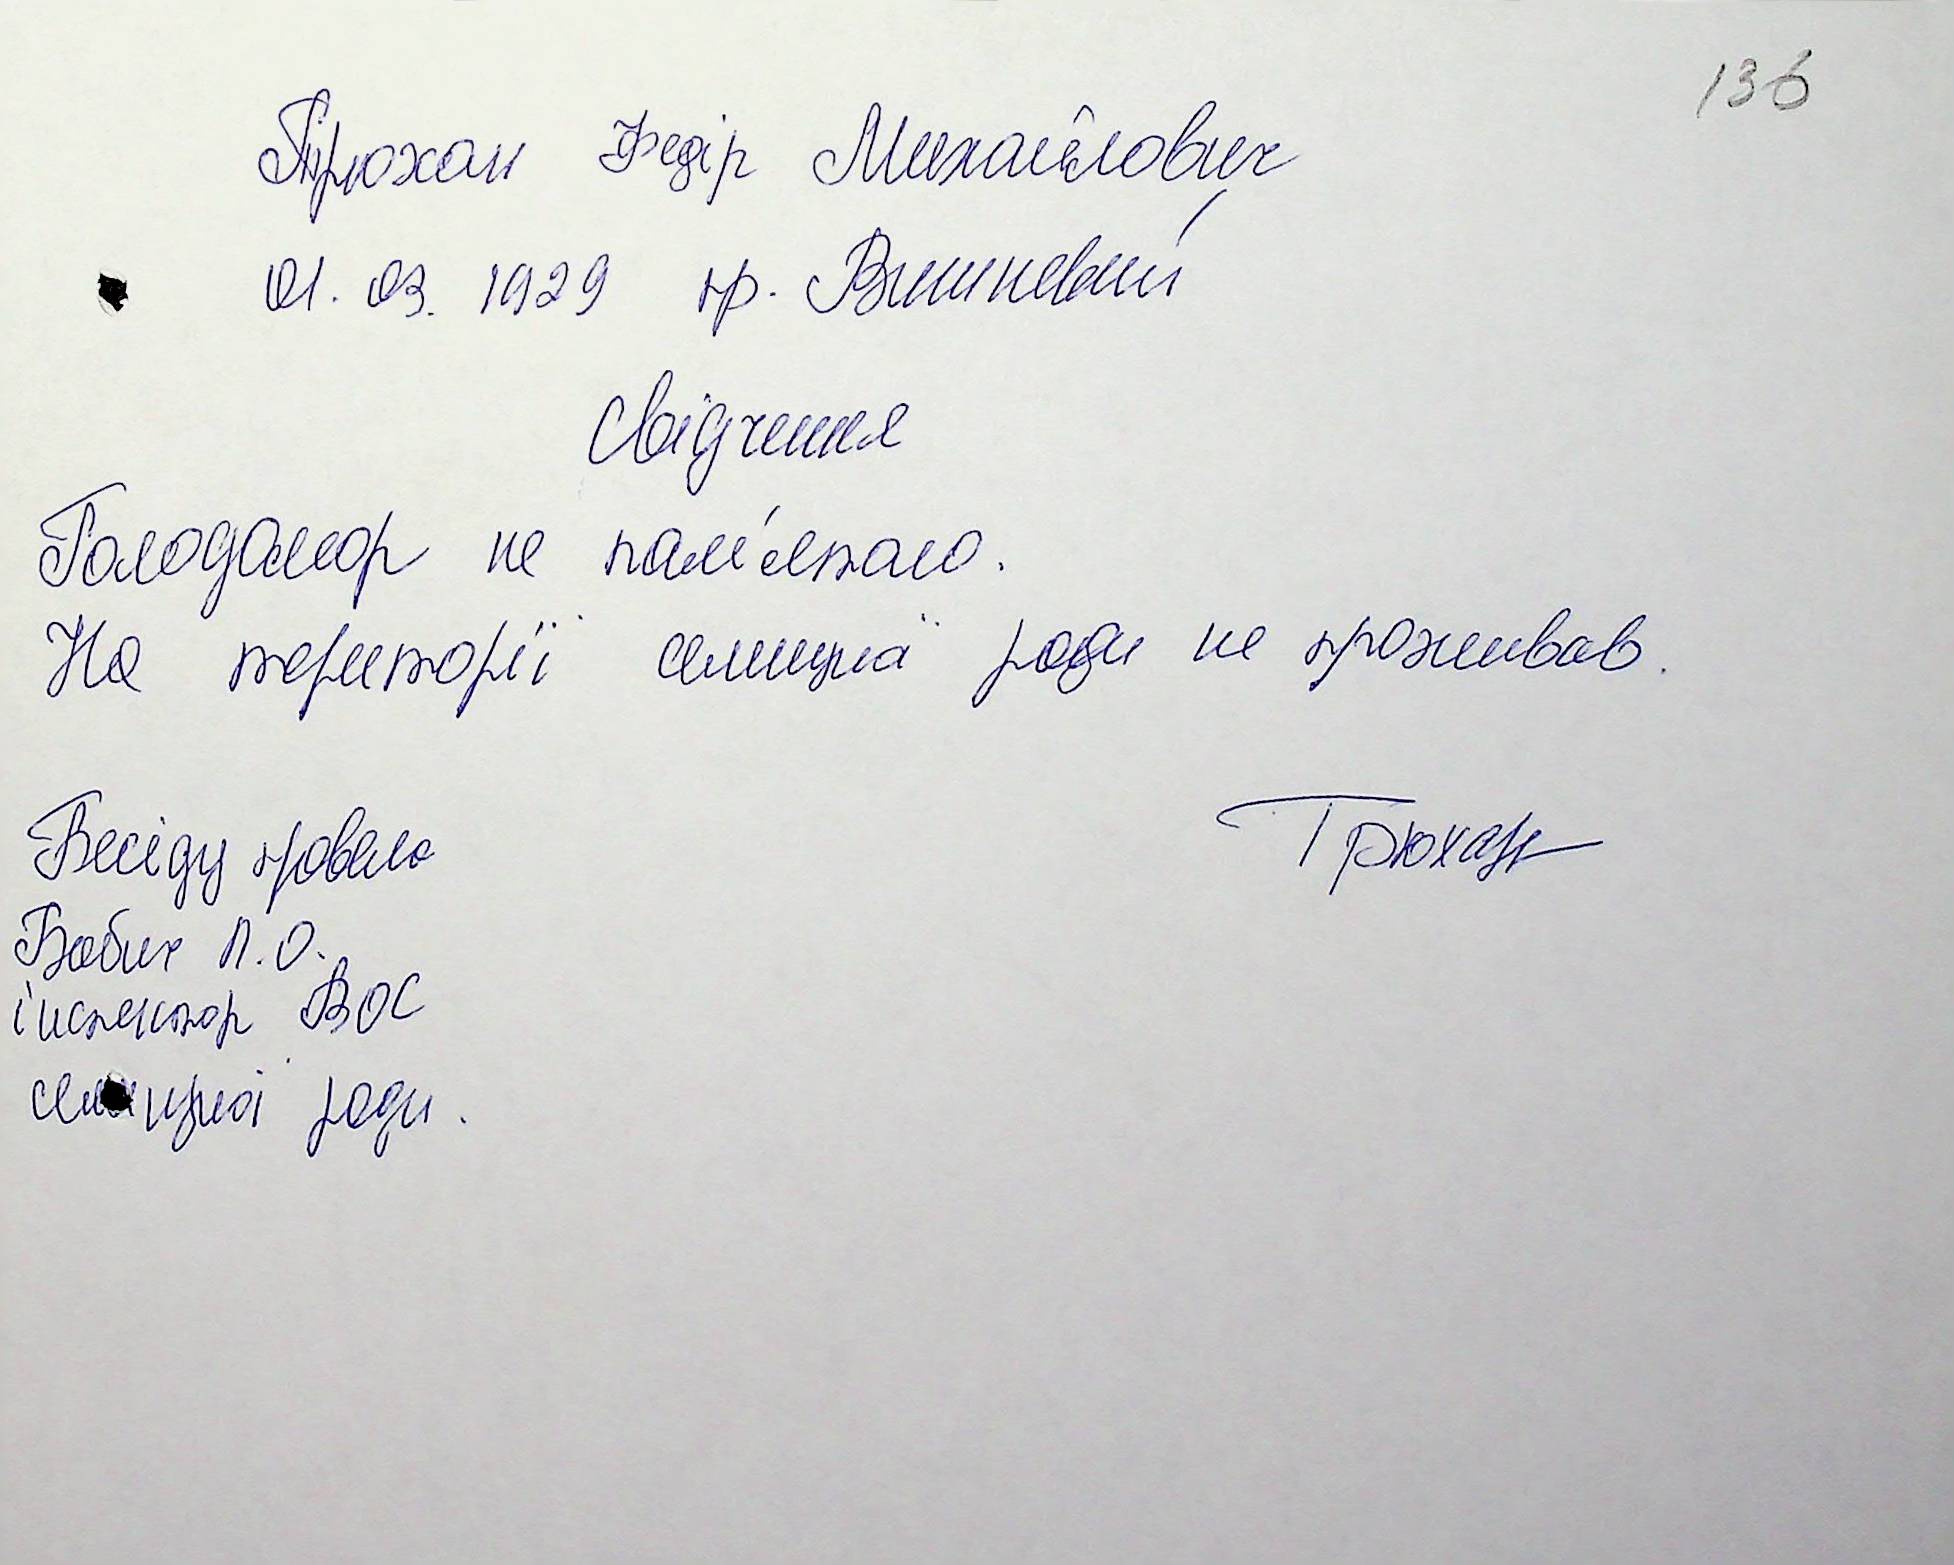 136
Трюхан Федір Михайлович
01.03.1929 пр. Вишневий
Свідчення
Голодомор не пам'ятаю.
На території селищної ради не проживав.
Трюхан
Бесіду провела
Бабич Л.О.
інспектор ВОС
селищної ради.